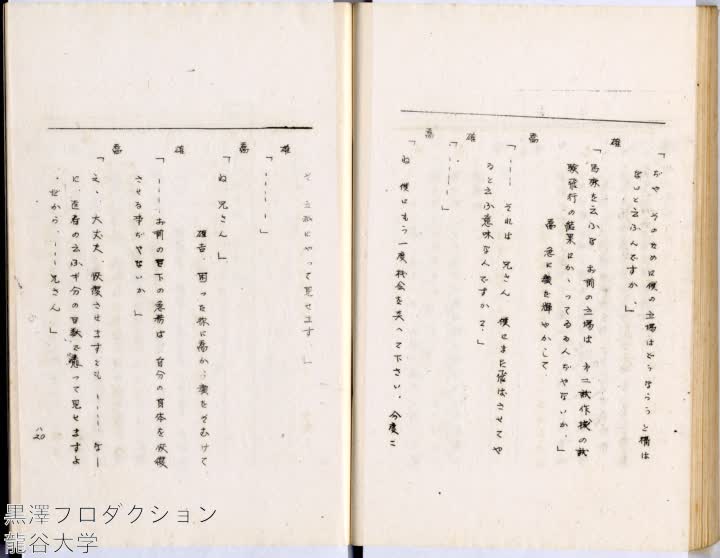 「ぢや そのために僕の立場はどうならうと構は
ないと云ふんですか」
雄
「馬鹿を云ふな お前の立場は 第二試作機の試
験飛行の結果にかゝってゐるんぢやないか」
喬 急に眼を輝やかして
喬
「…… それは 兄さん 僕にまだ飛ばさせてや
ると云ふ意味なんですか？」
雄
「……」
喬
「ね 僕にもう一度機会を与へて下さい、今度こ
そ 立派にやって見せます」
雄
「……」
喬
「ね 兄さん」
雄吉、困った様に喬から眼をそむけて
雄
「…… お前の目下の急務は 自分の身体を恢復
させる事ぢやないか」
喬
「え、大丈夫、恢復させますとも…… なー
に、医者の云ふ半分の日数で癒って見せますよ
・だから、……兄さん」
八20
黒澤プロダクション
龍谷大学